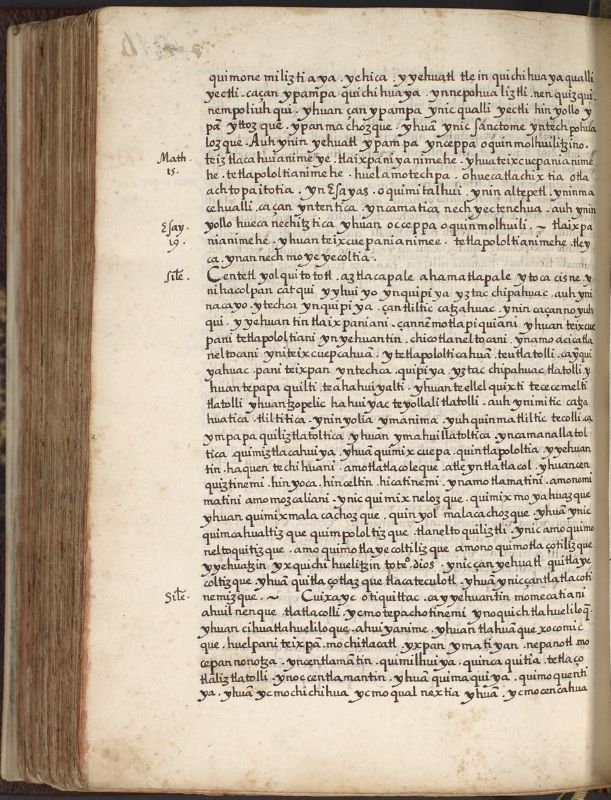 quimonemiliztiaya. yehica. yyehuatl tlein quichihuaya qualli
yectli. caçan ypampa quichihuaya. ynnepohualiztli. nenquizqui.
nempoliuhqui. yhuan çan ypampa ynic qualli yectli hinyollo y
pã yttozque. ypanmachozque. yhuã ynic sanctome yntechpohua
lozque. Auh ynin yehuatl ypampa ynceppa oquinmolhuilitzino.
Math 15. teiztlacahuianimeye. tlaixpaniyanimehe. yhuateixcuepanianime
he. tetlapololtianimehe. huelamotechpa. ohuecatlachixtia otla
achtopaitotia. ynEsayas. oquimitalhui. ynin altepetl. yninma
cehualli. caçan yntentica. yncamatica nechyectenehua. auh ynin
Esay. 19. yollo huecanechitztica yhuan occeppa oquinmolhuili. ~ tlaixpa
nianimehe. yhuan teixcuepanianimee. tetlapololtianimehe. tley
ca. ynannechmoyeyecoltia.
Silê. Centetl yolqui tototl. aztlacapale ahamatlapale ytoca cisne. y
nihacolpan catqui yyhuiyo ynquipiya yztac chipahuac. auh yni
nacayo. ytechca ynquipiya. çantliltic catzahuac. ynin caçannoyuh
qui. yyehuantin tlaixpaniani. çannēmotlapiquiani. yhuan teixcue
pani tetlapololtiani ynyehuantin. chicotlaneltocani. ynamo acicatla
neltocani yniteixcuepcahuã. ytetlapololticahuã. teutlatolli. cayuqui
yahuac. paniteixpan yntechca. quipiya. yztac chipahuac tlatolli y
huan tepapaquilti. teahahuiyalti. yhuan teellelquixti tececemelti
tlatolli yhuantzopelic hahuiyac teyollali tlatolli. auh ynimitic catza
huatica. tliltitica. yninyolia ymanima. yuhquinmatliltic tecolli. ca
ympapaquiliztlatoltica yhuan ymahuillatoltica. yncamanallatol
tica. quimiztlacahuiya. yhuã quimixcuepa. quintlapololtia. yyehuan
tin. haquen techihuani. amotlatlacoleque. atleyntlatlacol. yhuancen
quiztinemi. hinyoca. hinceltin. hicatinemi. ynamotlamatini. amonomi
matini amomozcaliani. ynic quimixnelozque. quimixmoyahuazque
yhuan quimixmalacachozque. quinyolmalacachozque. yhuã ynic
quimcahualtizque quimpololtizque. tlaneltoquiliztli. ynic amoquimo
neltoquitizque. amoquimotlayecoltilizque amonoquimotlaçotilizque
yyehuatzin yxquichihuelitzin totecº dios. ynicçan yehuatl quitlaye
coltizque. yhuã quitlaçotlazque tlacateculotl. yhuã yniccantlatlacoti
Silê. nemizque. ~ Cuixayc otiquittac. cayyehuantin momecatiani
ahuilnenque. tlatlacolli. ycmotepachotinemi ynoquichtlahueliloq̃.
yhuan cihuatlahueliloque. ahuiyanime. yhuan tlahuãque xocomic
que. huelpani teixpã. mochitlacatl. yxpan ymatiyan. nepanotl mo
cepannonotza. yncentlamãtin. quimilhuiya. quincaquitia. tetlaço
tlaliztlatolli. ynoccentlamantin. yhuã quimaquiya. quimoquenti
ya. yhuã ycmochichihua ycmoqualnextia yhuã. ycmocencahua